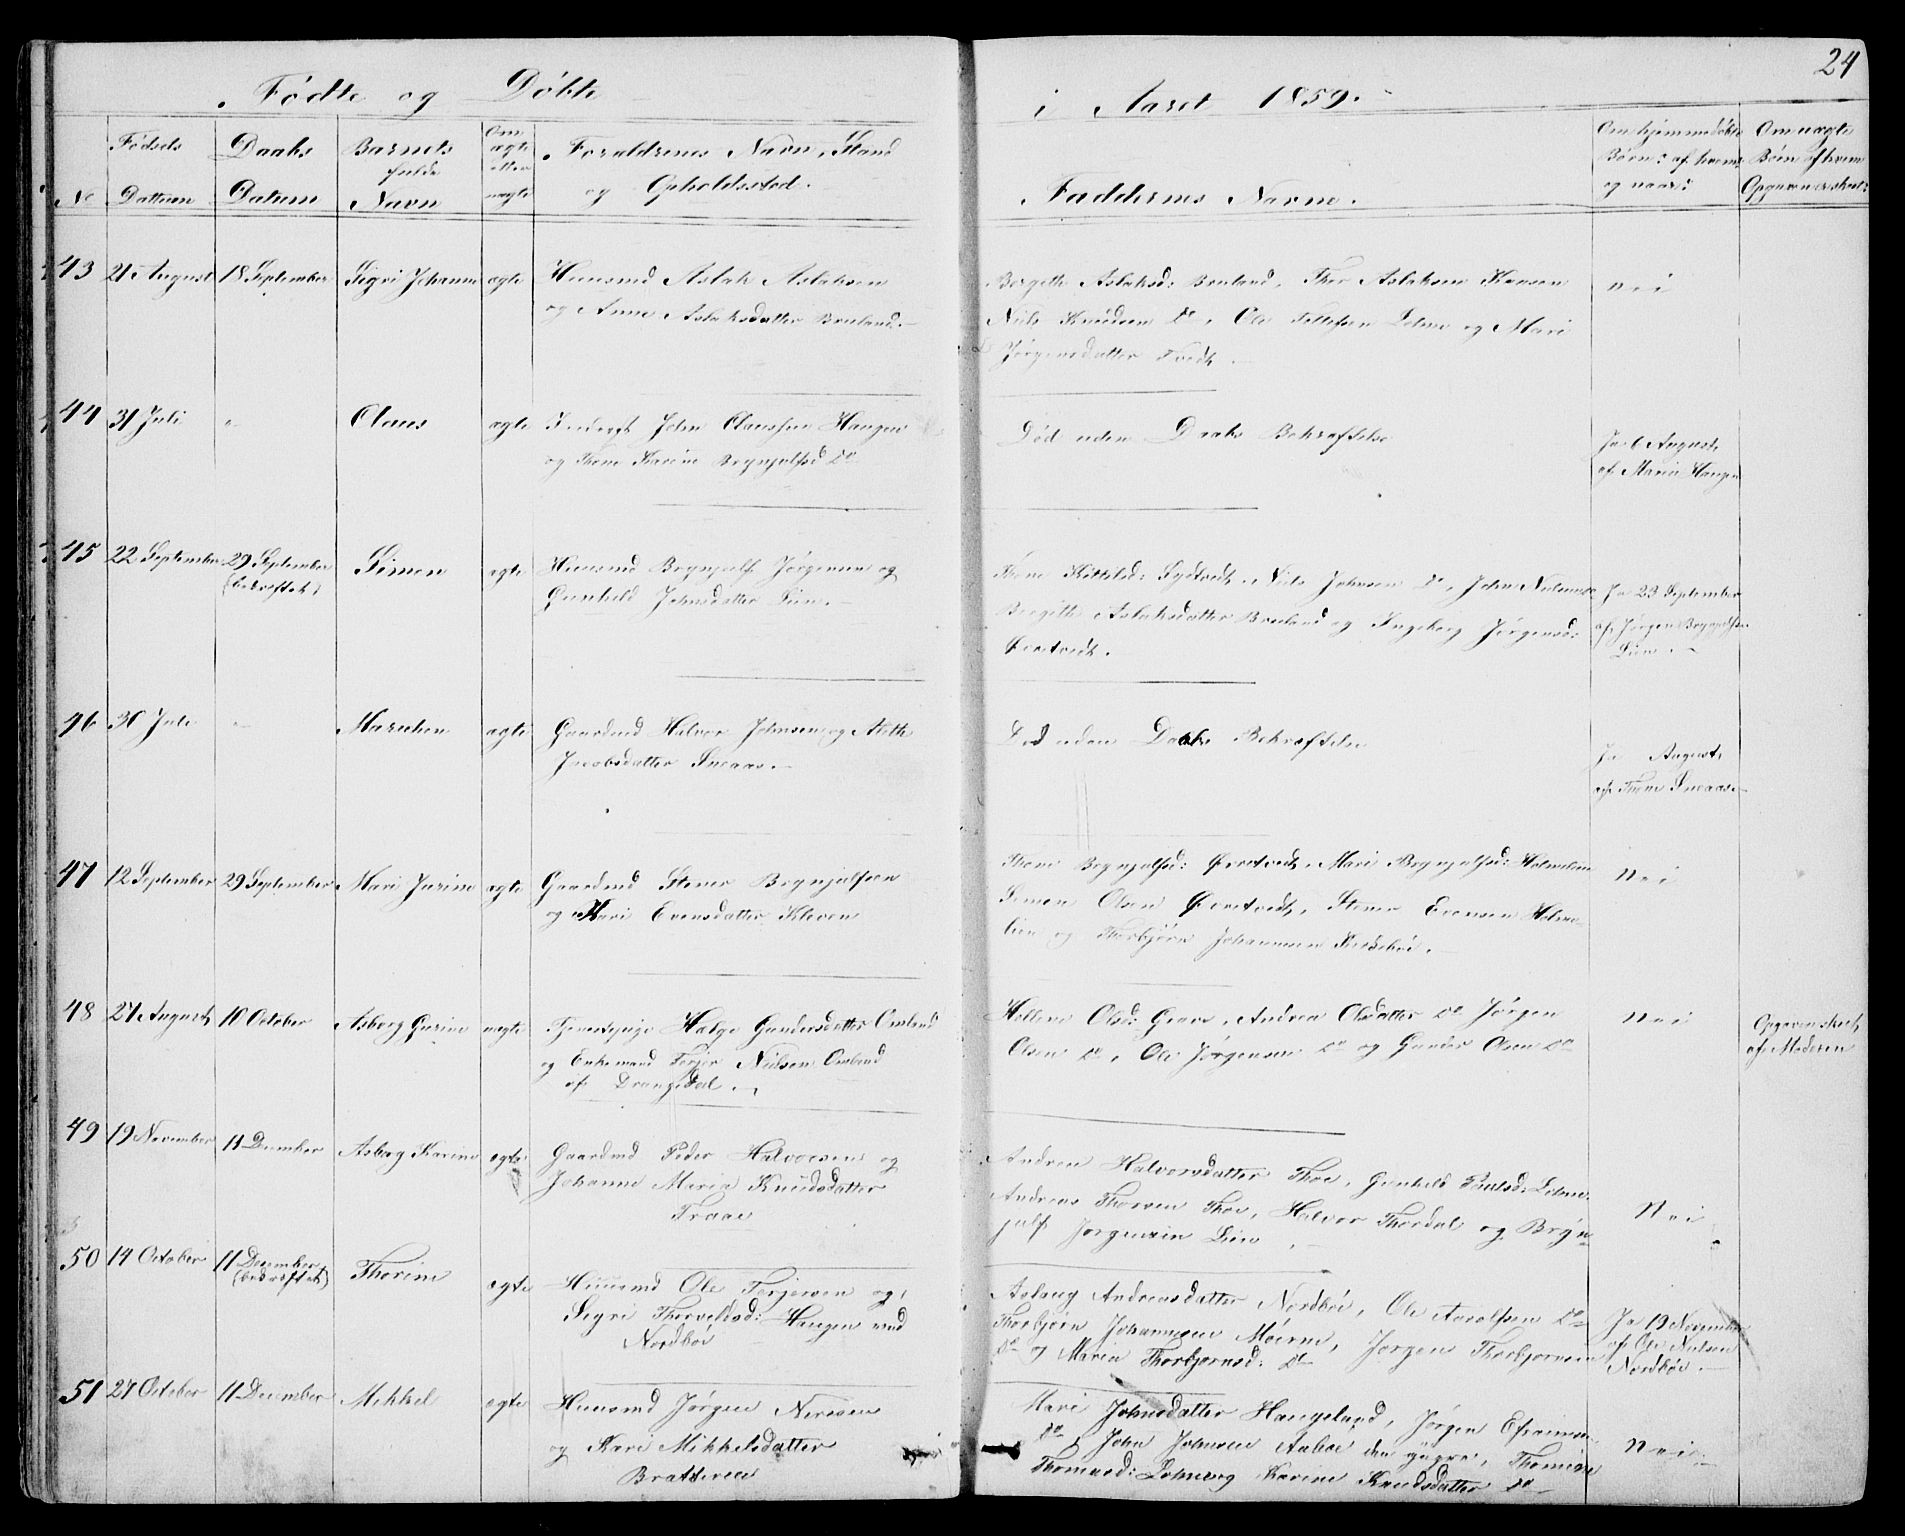 24
Fødte og Døbte
i Aaret 1859.
No
Fødsels Dattum
Daabs Datum
Barnets fulde Navn
Om ægte eller uægte
Forældrenes Navn, Stand
og Opholdssted.
Faddernes Navne.
Om hjemmedøbte
Børn: af hvem
og naar:
Om uægte
Børn af hvem
Opgaven er skeet:
43 21 August 18 September Sigri Johanne ægte Huusmd Aslak Aslaksen
og Anne Aslaksdatter Bruland.
Bergith Aslaksd: Bruland, Thor Aslaksen
Niels Knudsen Do, Ole Tellefsen Lolme og Mari
Jørgensdatter Tvedt.
nei
44 31 Juli " Olaus ægte John Olaussen Haugen
og Thone Karine Brynjulfsd Do
Død uden Daabs Bekræftelse
Ja 6 August
af Maria Haugen
45 22 September 29 September
(bekræftet)
Simon ægte Huusmd Brynjulf Jørgensen og
Gunhild Johnsdatter Lien.
Thone Kittilsd: Sydtvedt, Niels Johnsen Do, John Nielsen Do
Bergith Aslaksdatter Bruland og Ingeborg Jørgensd:
Øvretvedt.
Ja 23 September
af Jørgen Brynjulfsen
Lien.
46 30 Juli " Marichen ægte Gaardmd Halvor Johnsen og Aleth
Jacobsdatter Sneaas.
Død uden Daabs Bekræftelse
Ja August
af Thone Sneaas.
47 12 September 29 September Mari Jurine ægte Gaardmd Stener Brynjulfsen
og Kari Evensdatter Kleven
Thone Brynjulfsd: Øvretvedt, Mari Brynjulfsd: Holmelien
Simon Olsen Øvretvedt, Stener Evensen Holme-
lien og Thorbjørn Johannesen
nei
48 27 August 10 October Asborg Gurine uægte Tjenestepige Helge Gundersdatter Omland
og Enkemand Terjer Nielsen Omland
af Drangedal.
Hellene Olsd: Grave, Andrea Olsdatter Do Jørgen
Olsen Do, Ole Jørgensen Do og Gunder Olsen Do
nei
Opgaven skeet
af Moderen
49 19 November 11 December Asborg Karine ægte Gaardmd Peder Halvorsen og
Johanne Maria Knudsdatter
Traae
Andrea Halvorsdatter Thoe, Gunhild Paulsd: Lolme,
Andreas Thorsen Thoe, Halvor Thordal og Bryn-
julf Jørgensen Lien.
nei
50 14 October 11 December
(bekræftet)
Thorine ægte Huusmd Ole Terjersen og
Sigri Thorvildsd: Haugen ved
Nordbøe
Aslaug Andreasdatter Nordbøe, Ole Aarolfsen Do
Thorbjørn Johannesen Moerne, Jørgen Thorbjørnsen
Do og Maria Thorbjørnsd: Do
Ja 19 November
af Ole Nielsen
Nordbøe.
51 27 October 11 December Mikkel ægte Huusmd Jørgen Neresen
og Kari Mikkelsdatter
Bratterøe
Mari Johnsdatter Haugelund, Jørgen Efraimsen
Do, John Johnsen Aabøe den yngre, Thomine
Thomasd: Lolme og Karine Knudsdatter Do
nei